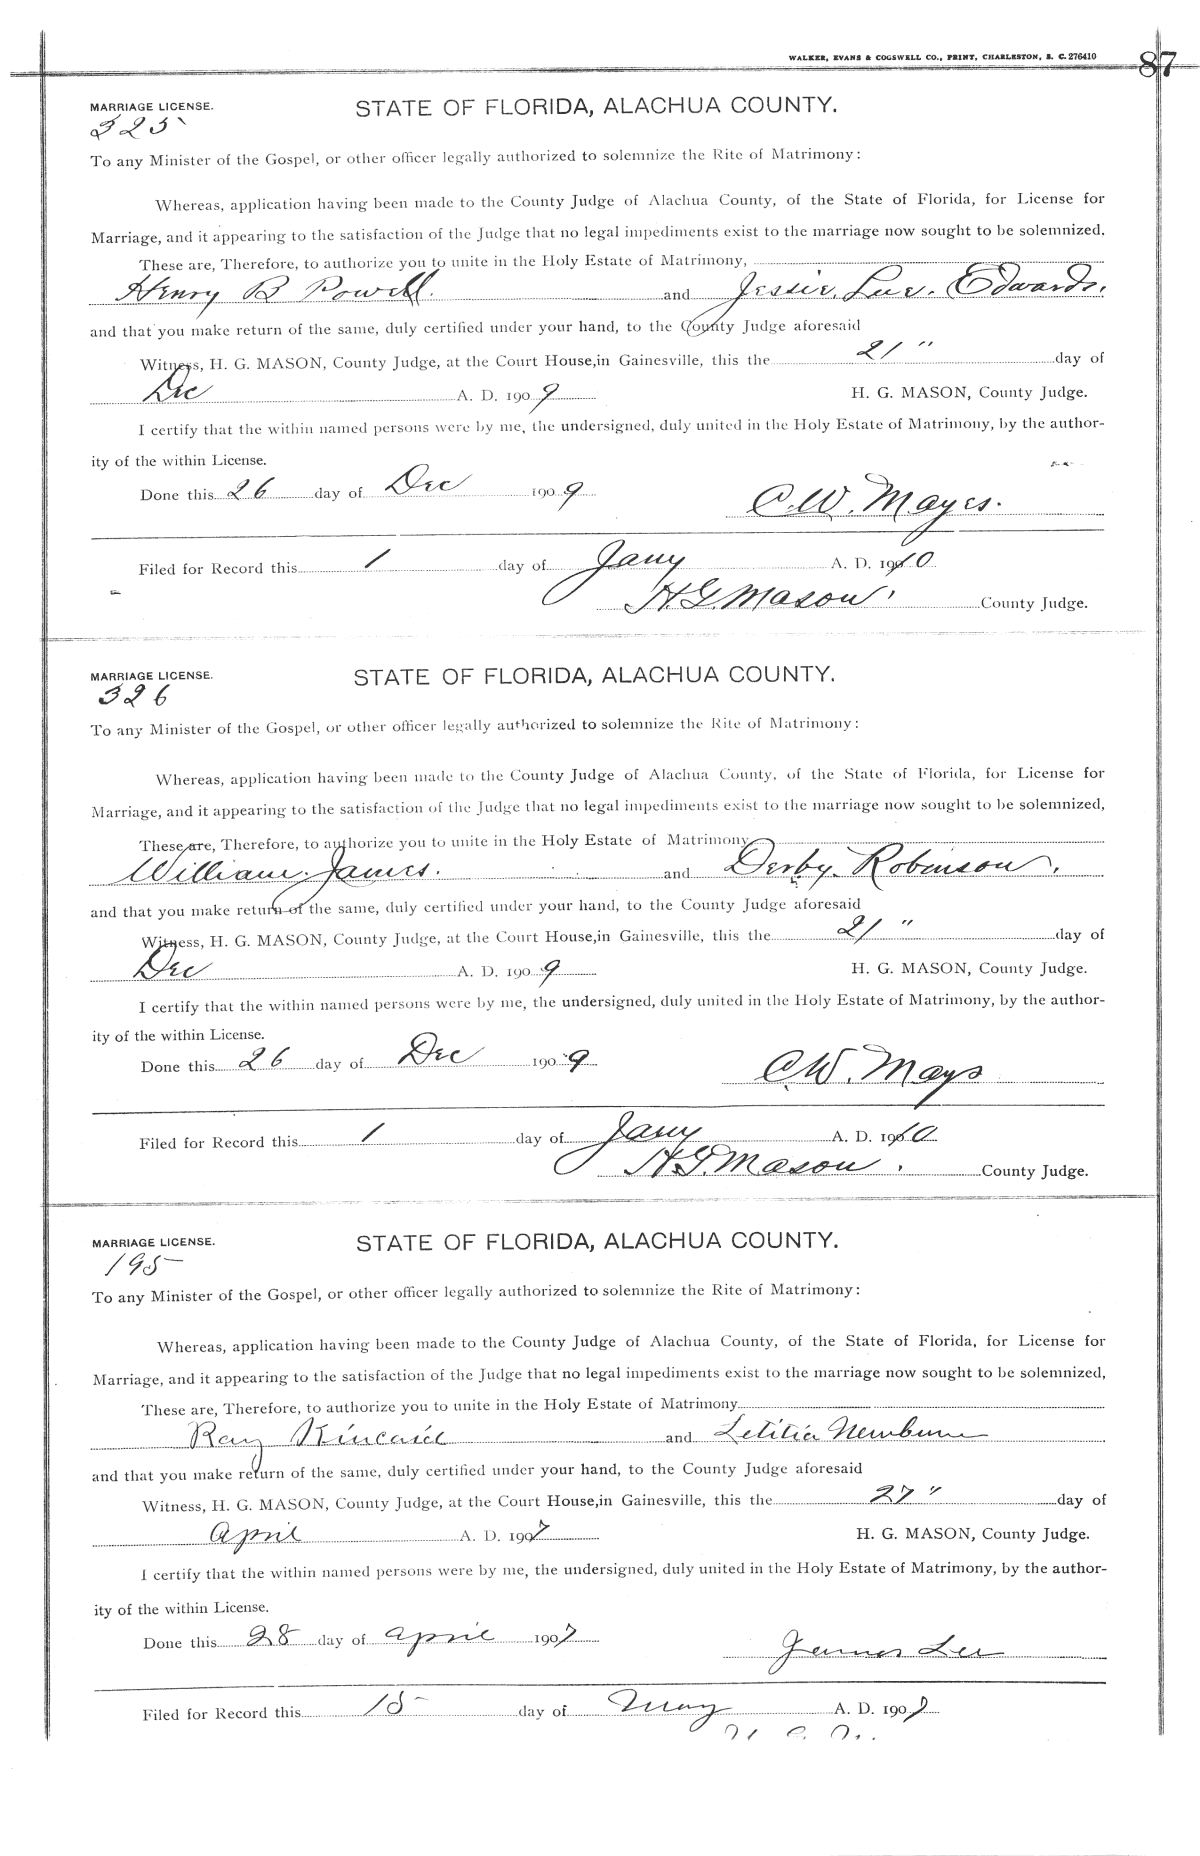 WALKER, EVANS & COGSWELL CO., PRINT, CHARLESTON, S. C. 276410
87
MARRIAGE LICENSE.
STATE OF FLORIDA, ALACHUA COUNTY.
325
To any Minister of the Gospel, or other officer legally authorized to solemnize the Rite of Matrimony:
Whereas, application having been made to the County Judge of Alachua County, of the State of Florida, for License for
Marriage, and it appearing to the satisfaction of the Judge that no legal impediments exist to the marriage now sought to be solemnized.
These are, Therefore, to authorize you to unite in the Holy Estate of Matrimony,
Henry B Powell. and Jessie. Lue. Edwards.
and that you make return of the same, duly certified under your hand, to the County Judge aforesaid
Witness, H. G. MASON, County Judge, at the Court House, in Gainesville, this the 21" day of
Dec A. D. 1909 H. G. MASON, County Judge.
I certify that the within named persons were by me, the undersigned, duly united in the Holy Estate of Matrimony, by the author-
ity of the within License.
Done this 26 day of Dec 1909 C. W. Mayes.
Filed for Record this 1 day of Jany A. D. 1910
H. G. Mason. County Judge.
MARRIAGE LICENSE.
STATE OF FLORIDA, ALACHUA COUNTY.
326
To any Minister of the Gospel, or other officer legally authorized to solemnize the Rite of Matrimony:
Whereas, application having been made to the County Judge of Alachua County, of the State of Florida, for License for
Marriage, and it appearing to the satisfaction of the Judge that no legal impediments exist to the marriage now sought to be solemnized,
These are, Therefore, to authorize you to unite in the Holy Estate of Matrimony
William. James. and Derby. Robinson.
and that you make return of the same, duly certified under your hand, to the County Judge aforesaid
Witness, H. G. MASON, County Judge, at the Court House, in Gainesville, this the 21" day of
Dec A. D. 1909 H. G. MASON, County Judge.
I certify that the within named persons were by me, the undersigned, duly united in the Holy Estate of Matrimony, by the author-
ity of the within License.
Done this 26 day of Dec 1909 C. W. Mays
Filed for Record this 1 day of Jany A. D. 1910
H. G. Mason. County Judge.
MARRIAGE LICENSE.
STATE OF FLORIDA, ALACHUA COUNTY.
195
To any Minister of the Gospel, or other officer legally authorized to solemnize the Rite of Matrimony:
Whereas, application having been made to the County Judge of Alachua County, of the State of Florida, for License for
Marriage, and it appearing to the satisfaction of the Judge that no legal impediments exist to the marriage now sought to be solemnized,
These are, Therefore, to authorize you to unite in the Holy Estate of Matrimony
Ray Kincaid and Letitia Newburn
and that you make return of the same, duly certified under your hand, to the County Judge aforesaid
Witness, H. G. MASON, County Judge, at the Court House, in Gainesville, this the 27" day of
April A. D. 1907 H. G. MASON, County Judge.
I certify that the within named persons were by me, the undersigned, duly united in the Holy Estate of Matrimony, by the author-
ity of the within License.
Done this 28 day of April 1907 James Lee
Filed for Record this 15 day of May A. D. 1907